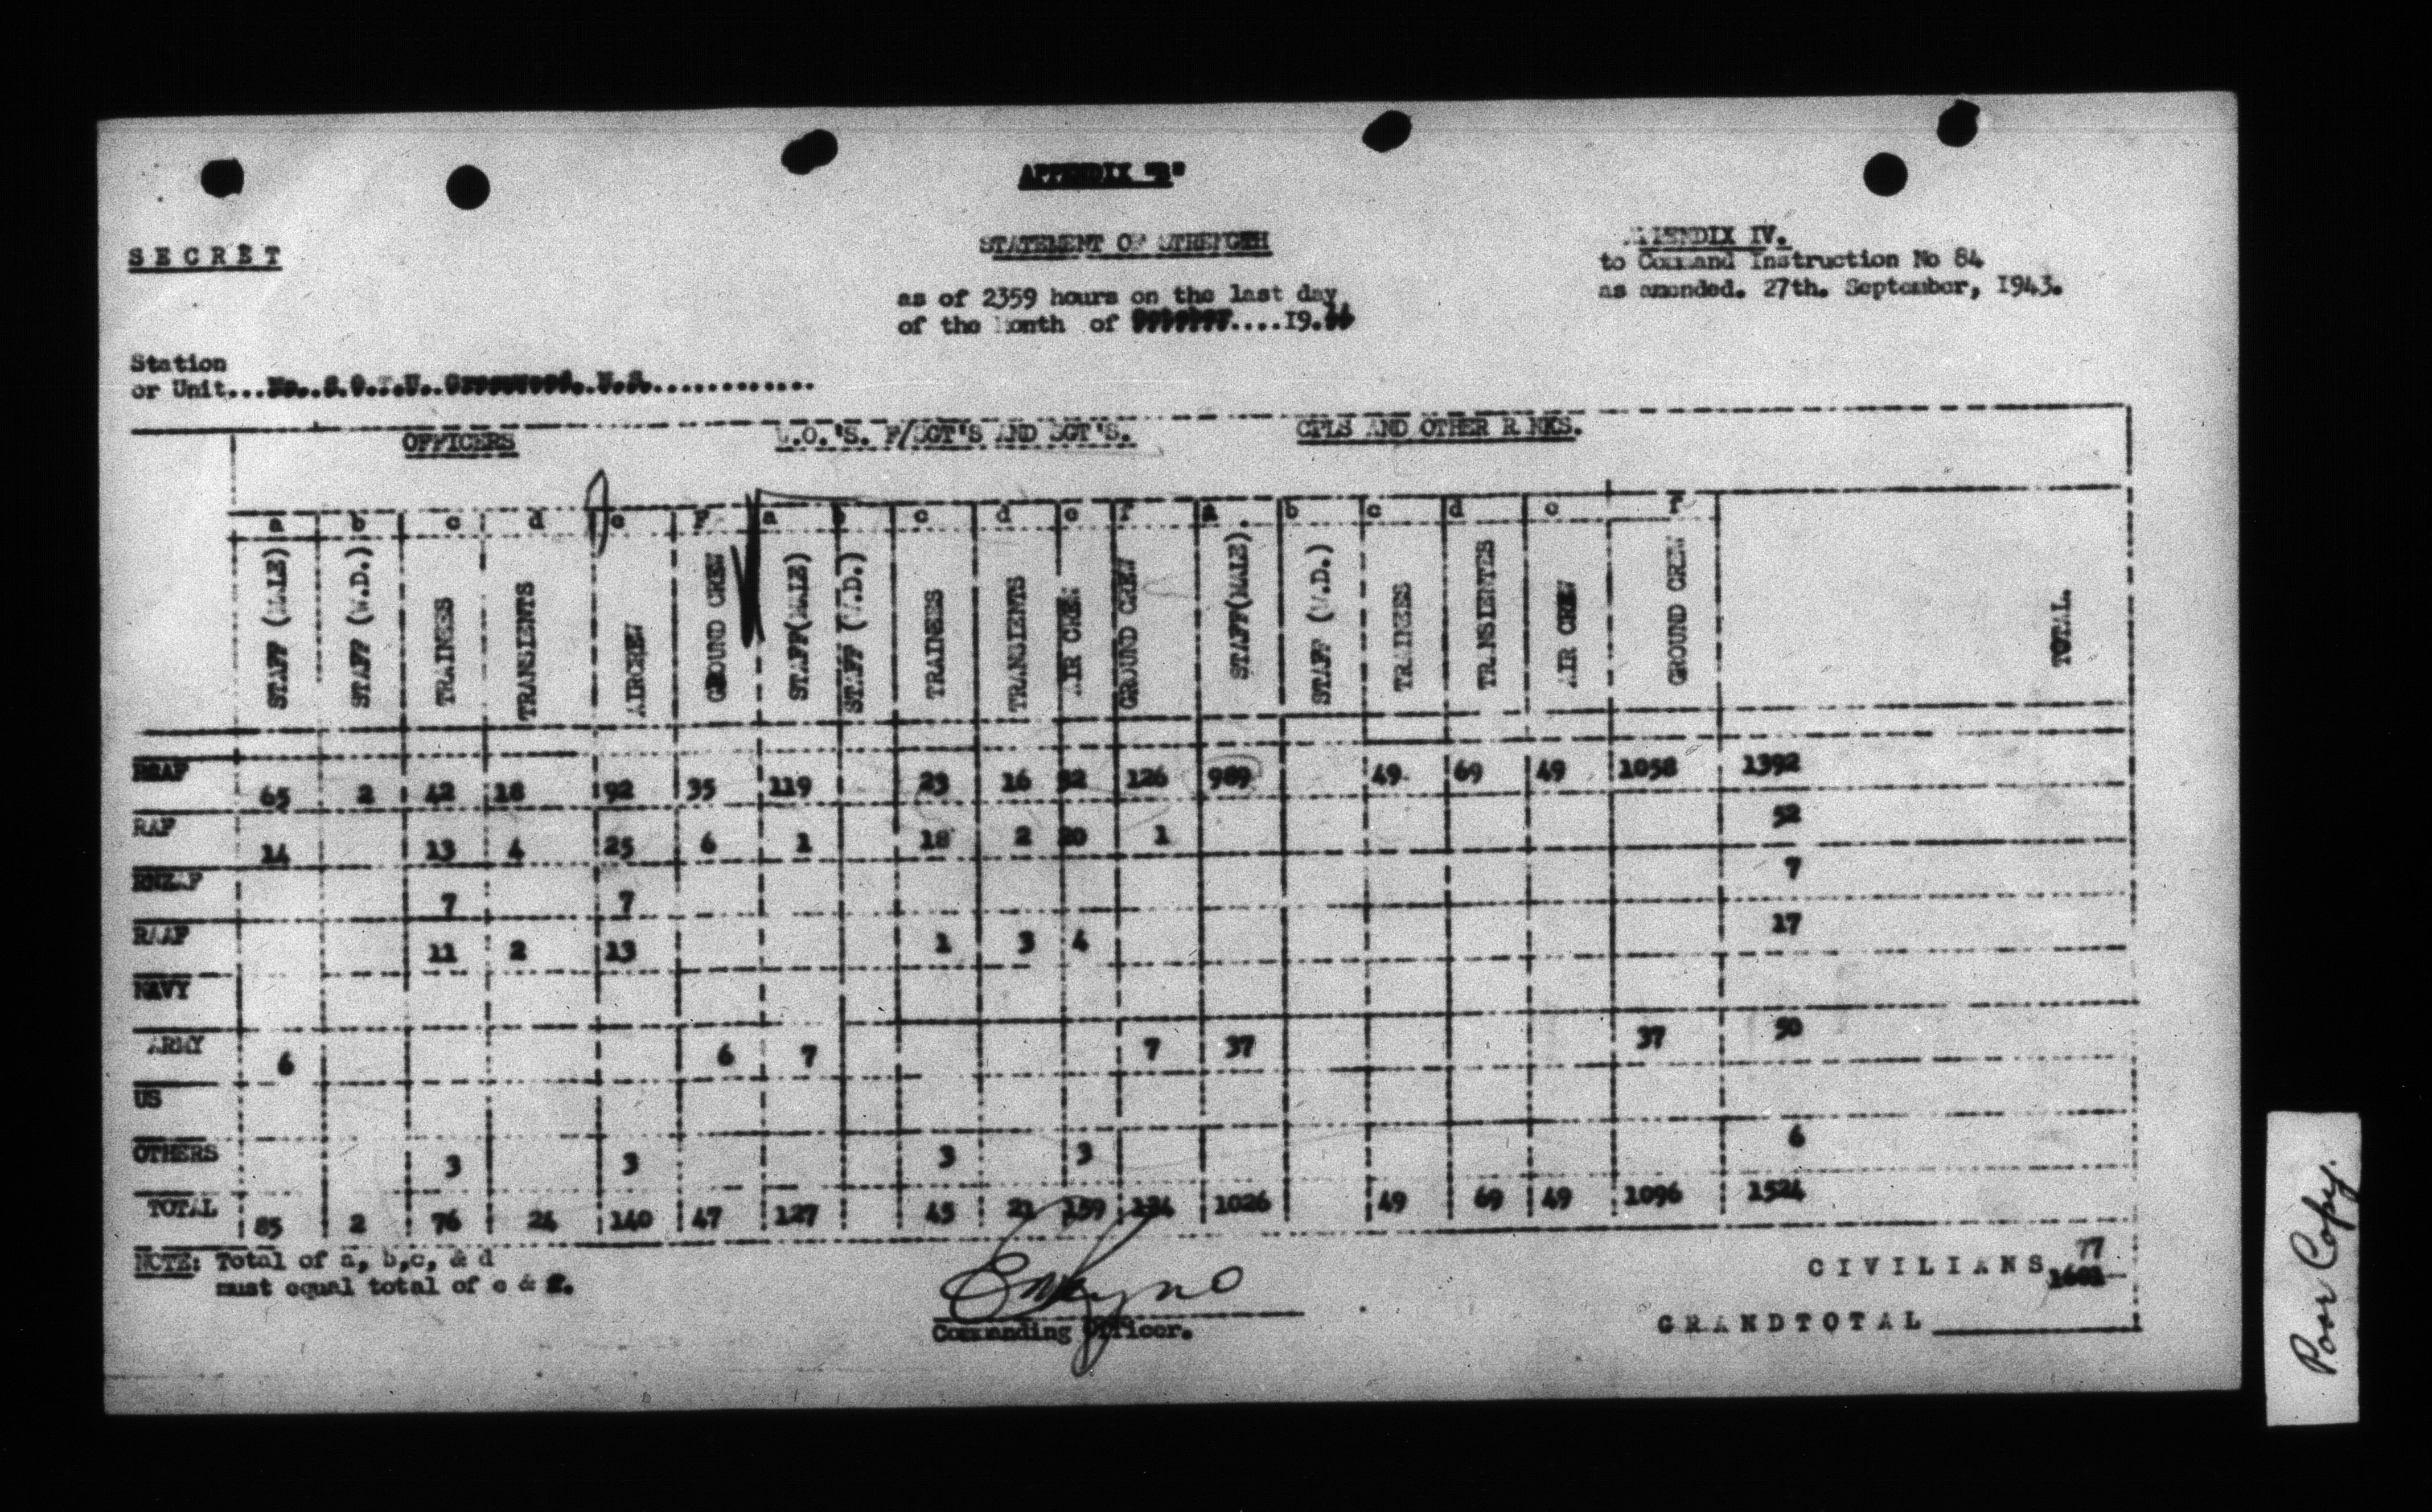 APPENDIX "B"
SECRET
STATEMENT OF STRENGTH
APPENDIX IV.
to Command Instruction No 84
as amended. 27th. September, 1943.
as of 2359 hours on the last day,
of the Month of October....19.44
Station
or Unit...No. 8 O.T.U. Greenwood. N.S..............
OFFICERS W.O.'S. F/SGT'S AND SGT'S. CPLS AND OTHER RANKS.
a b c d e F a b c d e f a b c d e f
STAFF (MALE) STAFF (W.D.) TRAINEES TRANSIENTS AIRCREW GROUND CREW STAFF(MALE) STAFF (W.D.) TRAINEES TRANSIENTS AIR CREW GROUND CREW STAFF(MALE) STAFF (W.D.) TRAINEES TRANSIENTES AIR CREW GROUND CREW TOTAL.
RCAF 65 2 42 18 92 35 119 23 16 32 126 989 49 69 49 1058 1392
RAF 14 13 4 25 6 1 18 2 20 1 52
RNZAF 7 7 7
RAAF 11 2 13 1 3 4 17
NAVY
ARMY 6 6 7 7 37 37 50
US
OTHERS 3 3 3 3 6
TOTAL 85 2 76 24 140 47 127 45 21 159 134 1026 49 69 49 1096 1524
NOTE: Total of a, b,c, & d
must equal total of e & f.
CIVILIANS 77
1601
Commanding Officer.
GRANDTOTAL
Poor Copy.